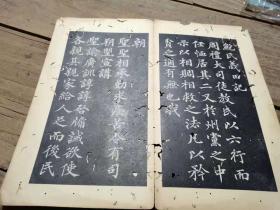 鮑氏義田記
周禮大司徒教民以六行而
任恤居其二又於州黨之中
示以相賙相救之法凡以矜
貧之通有無也我
朝
聖聖相承勤求有司
朔望宣講
聖諭廣訓諄諄誠欲使
各親其親家給人足而後民